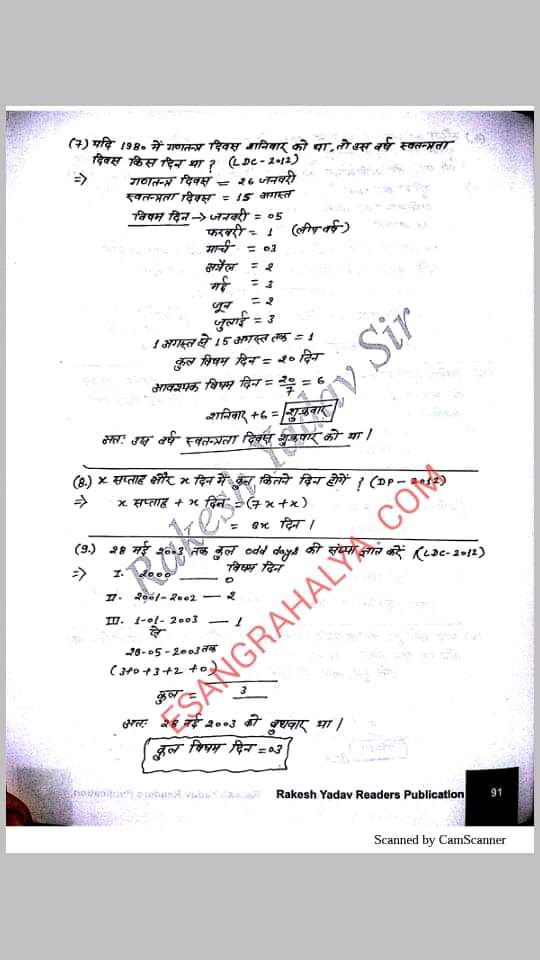 (7) यदि 1980 में गणतन्त्र दिवस शनिवार को था, तो उस वर्ष स्वतन्त्रता
दिवस किस दिन था ? (LDC-2012)
=> गणतन्त्र दिवस = 26 जनवरी
स्वतन्त्रता दिवस = 15 अगस्त
विषम दिन → जनवरी = 05
फरवरी = 1 (लीप वर्ष)
मार्च = 03
अप्रैल = 2
मई = 3
जून = 2
जुलाई = 3
1 अगस्त से 15 अगस्त तक = 1
कुल विषम दिन = 20 दिन
आवश्यक विषम दिन = 20/7 = 6
शनिवार + 6 = शुक्रवार
अतः उस वर्ष स्वतन्त्रता दिवस शुक्रवार को था |
(8.) x सप्ताह और x दिन में कुल कितने दिन होगें ? (DP-2012)
=> x सप्ताह + x दिन = (7x+x)
= 8x दिन |
(9.) 28 मई 2003 तक कुल odd days की संख्या ज्ञात करें (LDC-2012)
विषम दिन
=> I. 2000 — 0
II. 2001-2002 — 2
III. 1-01-2003 — 1
से
28-05-2003 तक
(3+0+3+2+0)
कुल = 3
अतः 28 मई 2003 को बुधवार था |
कुल विषम दिन = 03
Rakesh Yadav Sir
ESANGRAHALYA.COM
Rakesh Yadav Readers Publication 91
Scanned by CamScanner